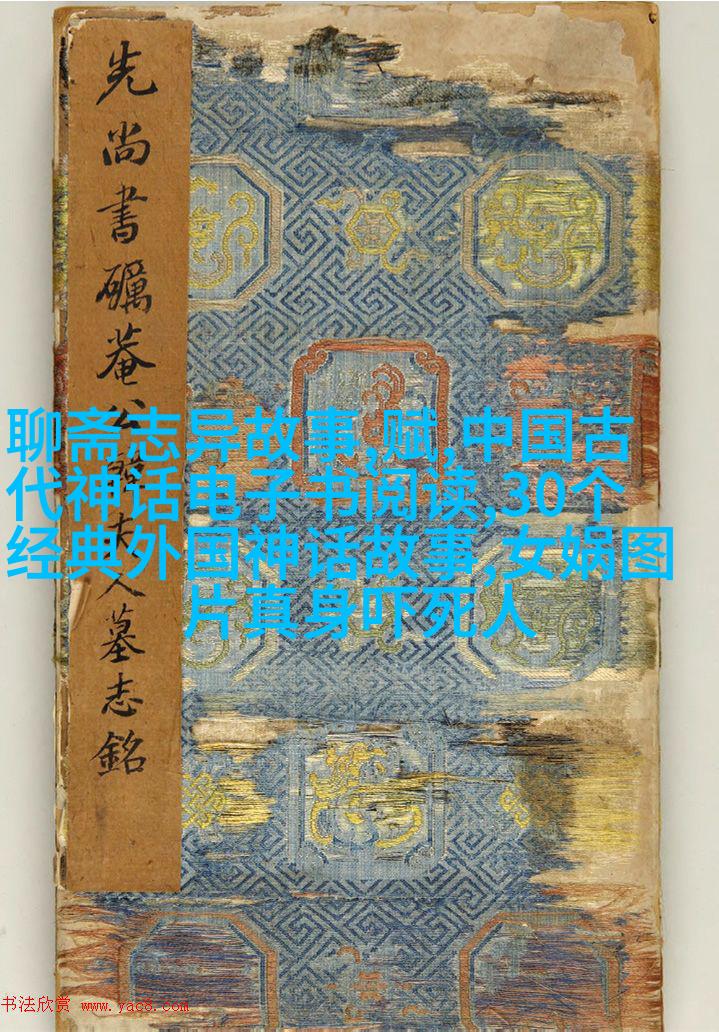 先尚書礪菴公暨夫人墓志銘
聊斋志异故事,赋,中国古
代神话电子书阅读,30个
经典外国神话故事,女娲图
片真身吓死人
书法欣赏 www.yac8.com